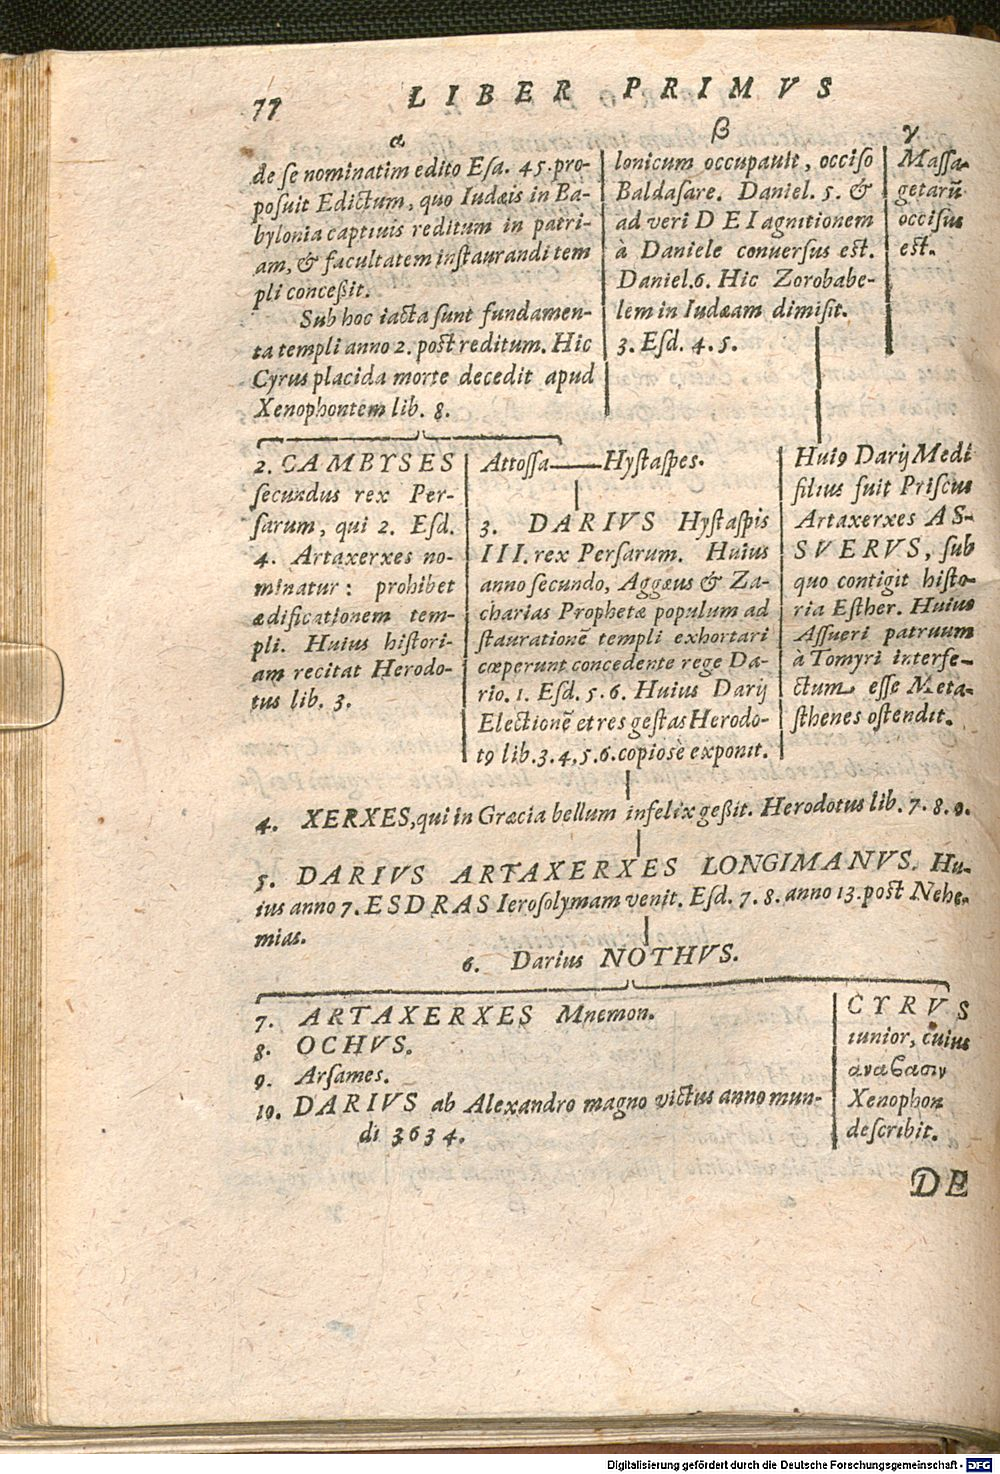 77 LIBER PRIMVS
α
de se nominatim edito Esa. 45. pro-
posuit Edictum, quo Iudæis in Ba-
bylonia captiuis reditum in patri-
am, & facultatem instaurandi tem
pli conceßit.
Sub hoc iacta sunt fundamen-
ta templi anno 2. post reditum. Hic
Cyrus placida morte decedit apud
Xenophontem lib. 8.
β
lonicum occupauit, occiso
Baldasare. Daniel. 5. &
ad veri DEI agnitionem
à Daniele conuersus est.
Daniel. 6. Hic Zorobabe-
lem in Iudæam dimisit.
3. Esd. 4. 5.
γ
Massa-
getarũ
occisus
est.
2. CAMBYSES
secundus rex Per-
sarum, qui 2. Esd.
4. Artaxerxes no-
minatur: prohibet
ædificationem tem-
pli. Huius histori-
am recitat Herodo-
tus lib. 3.
Attossa——Hystaspes.
3. DARIVS Hystaspis
III. rex Persarum. Huius
anno secundo, Aggæus & Za-
charias Prophetæ populum ad
staurationẽ templi exhortari
cœperunt concedente rege Da-
rio. 1. Esd. 5. 6. Huius Darij
Electionẽ et res gestas Herodo-
tꝰ lib. 3. 4, 5. 6. copiosè exponit.
Huiꝰ Darij Medi
filius fuit Priscus
Artaxerxes AS-
SVERVS, sub
quo contigit histo-
ria Esther. Huius
Assueri patruum
à Tomyri interfe-
ctum esse Meta-
sthenes ostendit.
4. XERXES, qui in Græcia bellum infelix geßit. Herodotus lib. 7. 8. 9.
5. DARIVS ARTAXERXES LONGIMANVS. Hu-
ius anno 7. ESDRAS Ierosolymam venit. Esd. 7. 8. anno 13. post Nehe-
mias.
6. Darius NOTHVS.
7. ARTAXERXES Mnemon.
8. OCHVS.
9. Arsames.
10. DARIVS ab Alexandro magno victus anno mun-
di 3634.
CYRVS
iunior, cuius
αναβασιν
Xenophon
describit.
DE
Digitalisierung gefördert durch die Deutsche Forschungsgemeinschaft - DFG